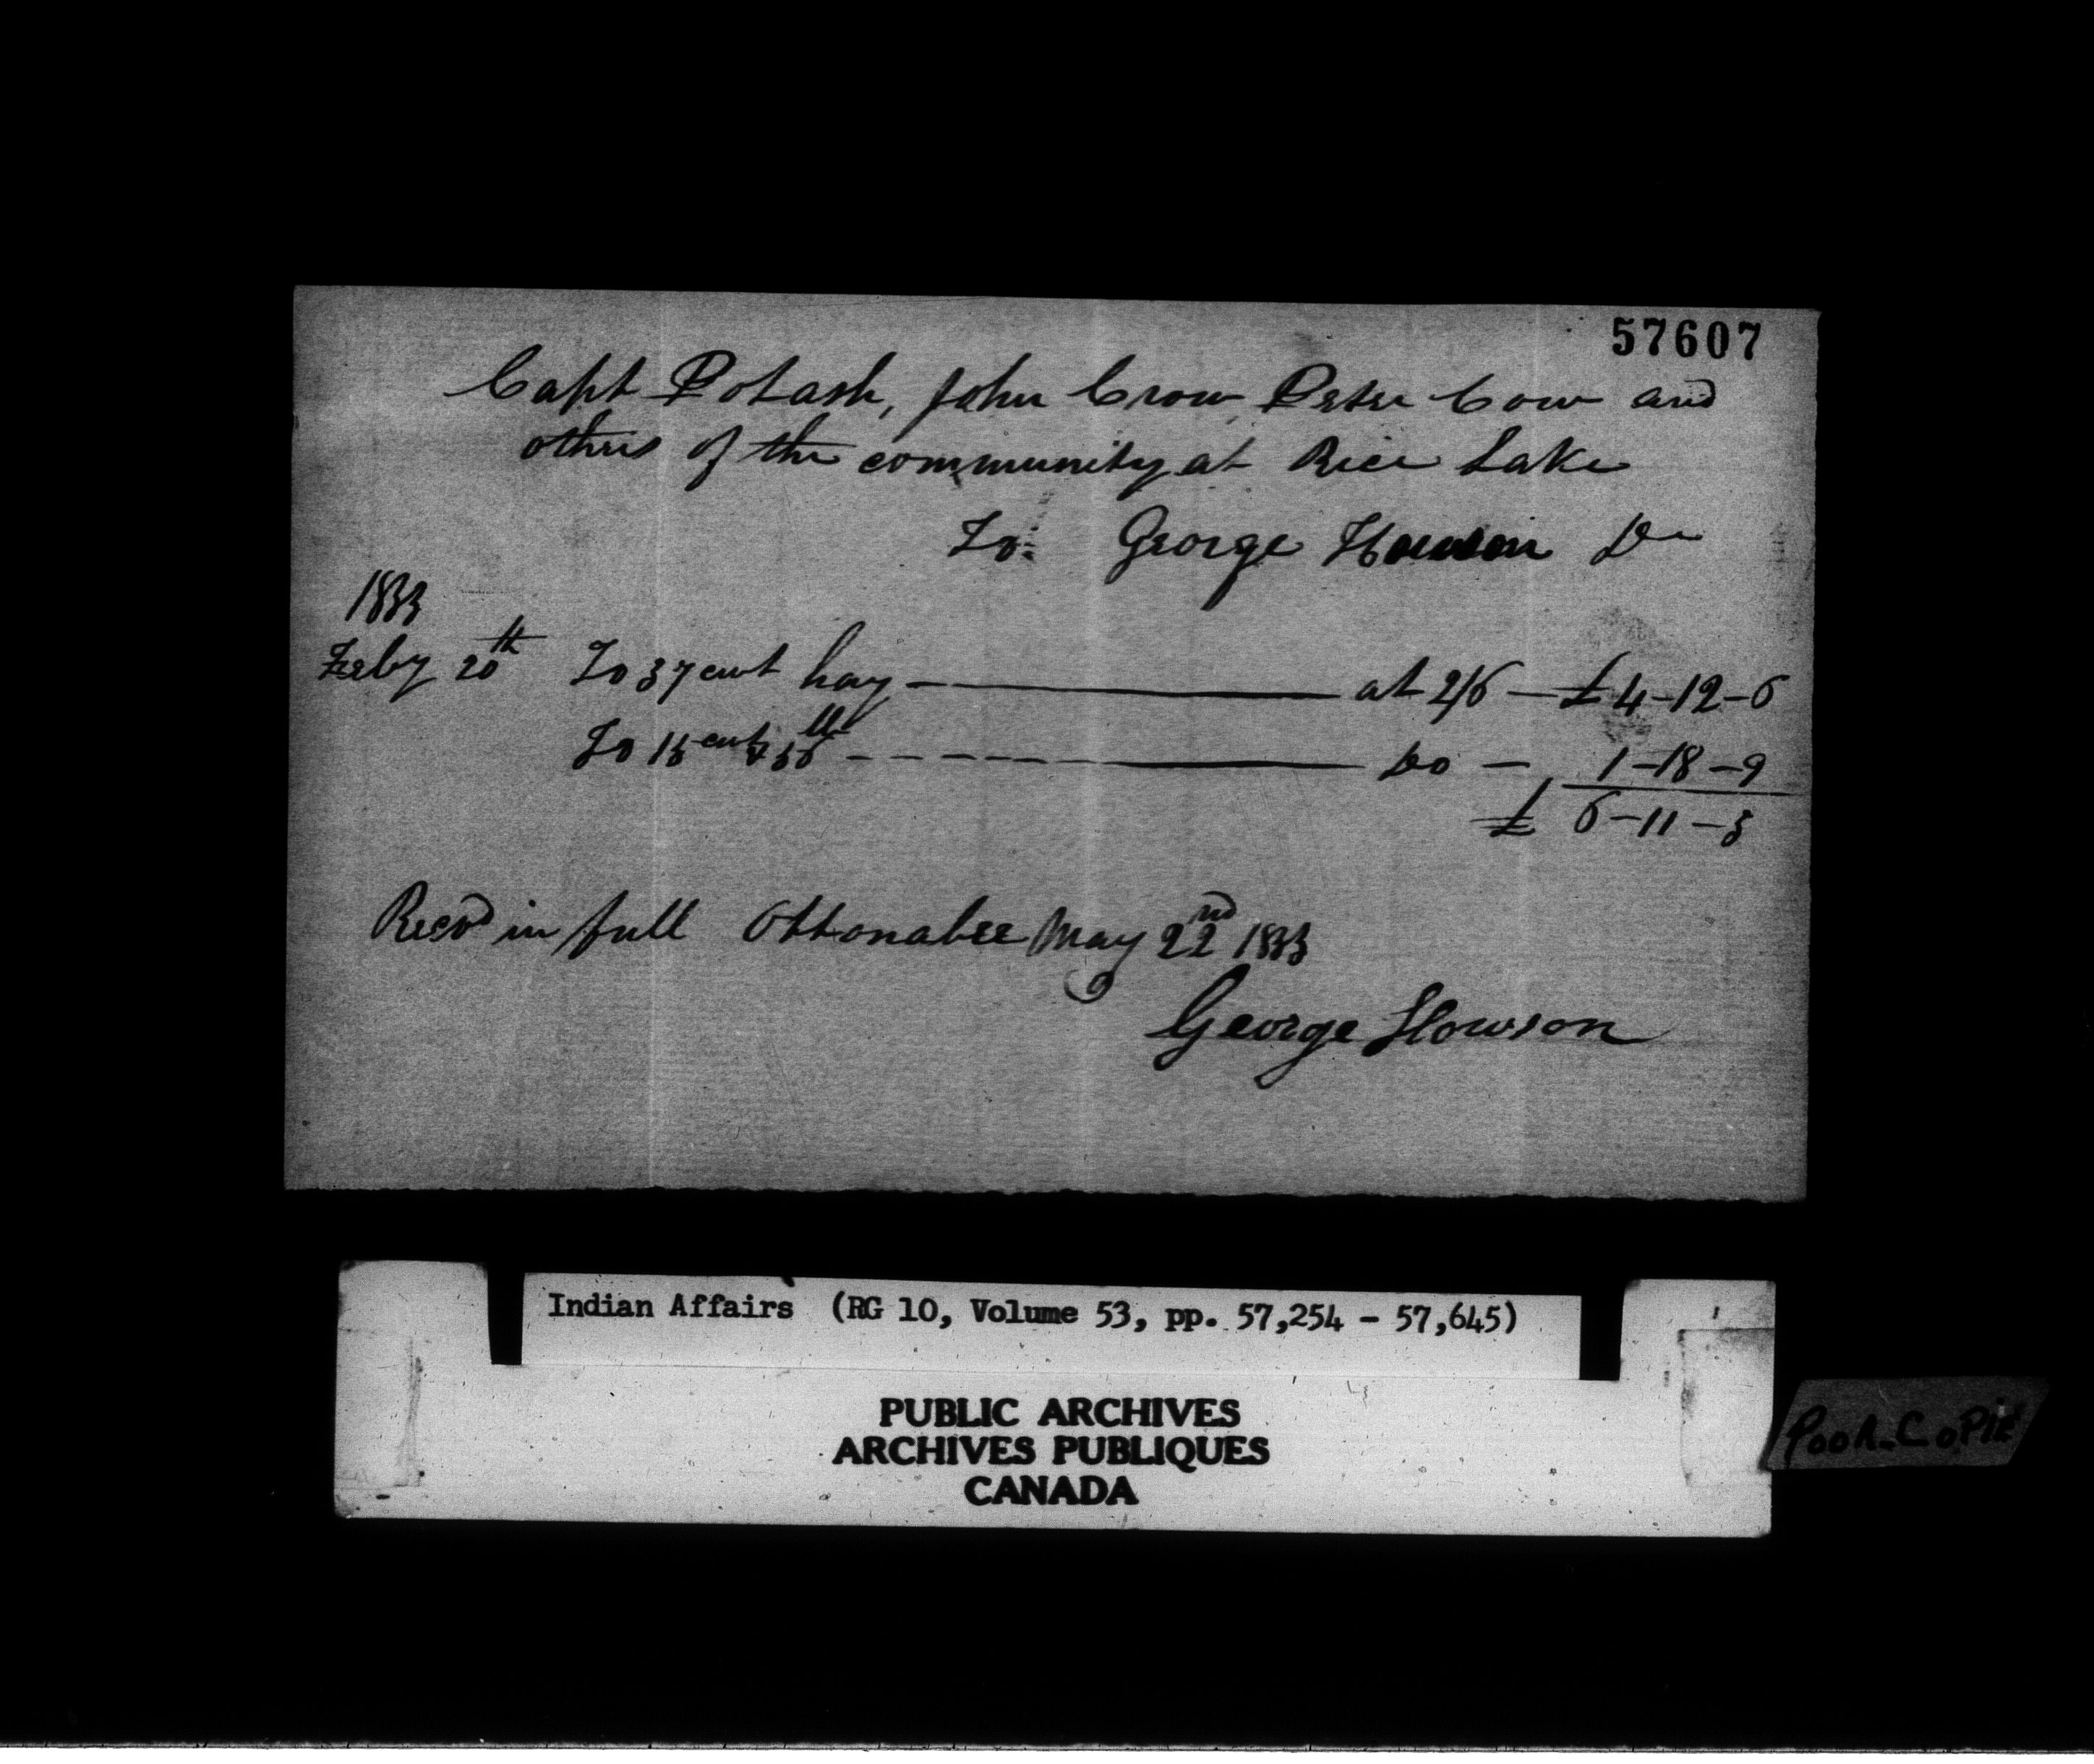 57607
Capt Potash, John Crow, Peter Cow and
others of the community at Rice Lake
To: George Howson Dr
1833
Feby 20th To 37 cwt hay at 2/6 £ 4-12-6
To 15 cwt & 56 lb Do 1-18-9
£ 6-11-3
Recd in full Ottonabee May 22nd 1833
George Howson
Indian Affairs (RG 10, Volume 53, pp. 57,254 - 57,645)
PUBLIC ARCHIVES
ARCHIVES PUBLIQUES
CANADA
Poor-Copie